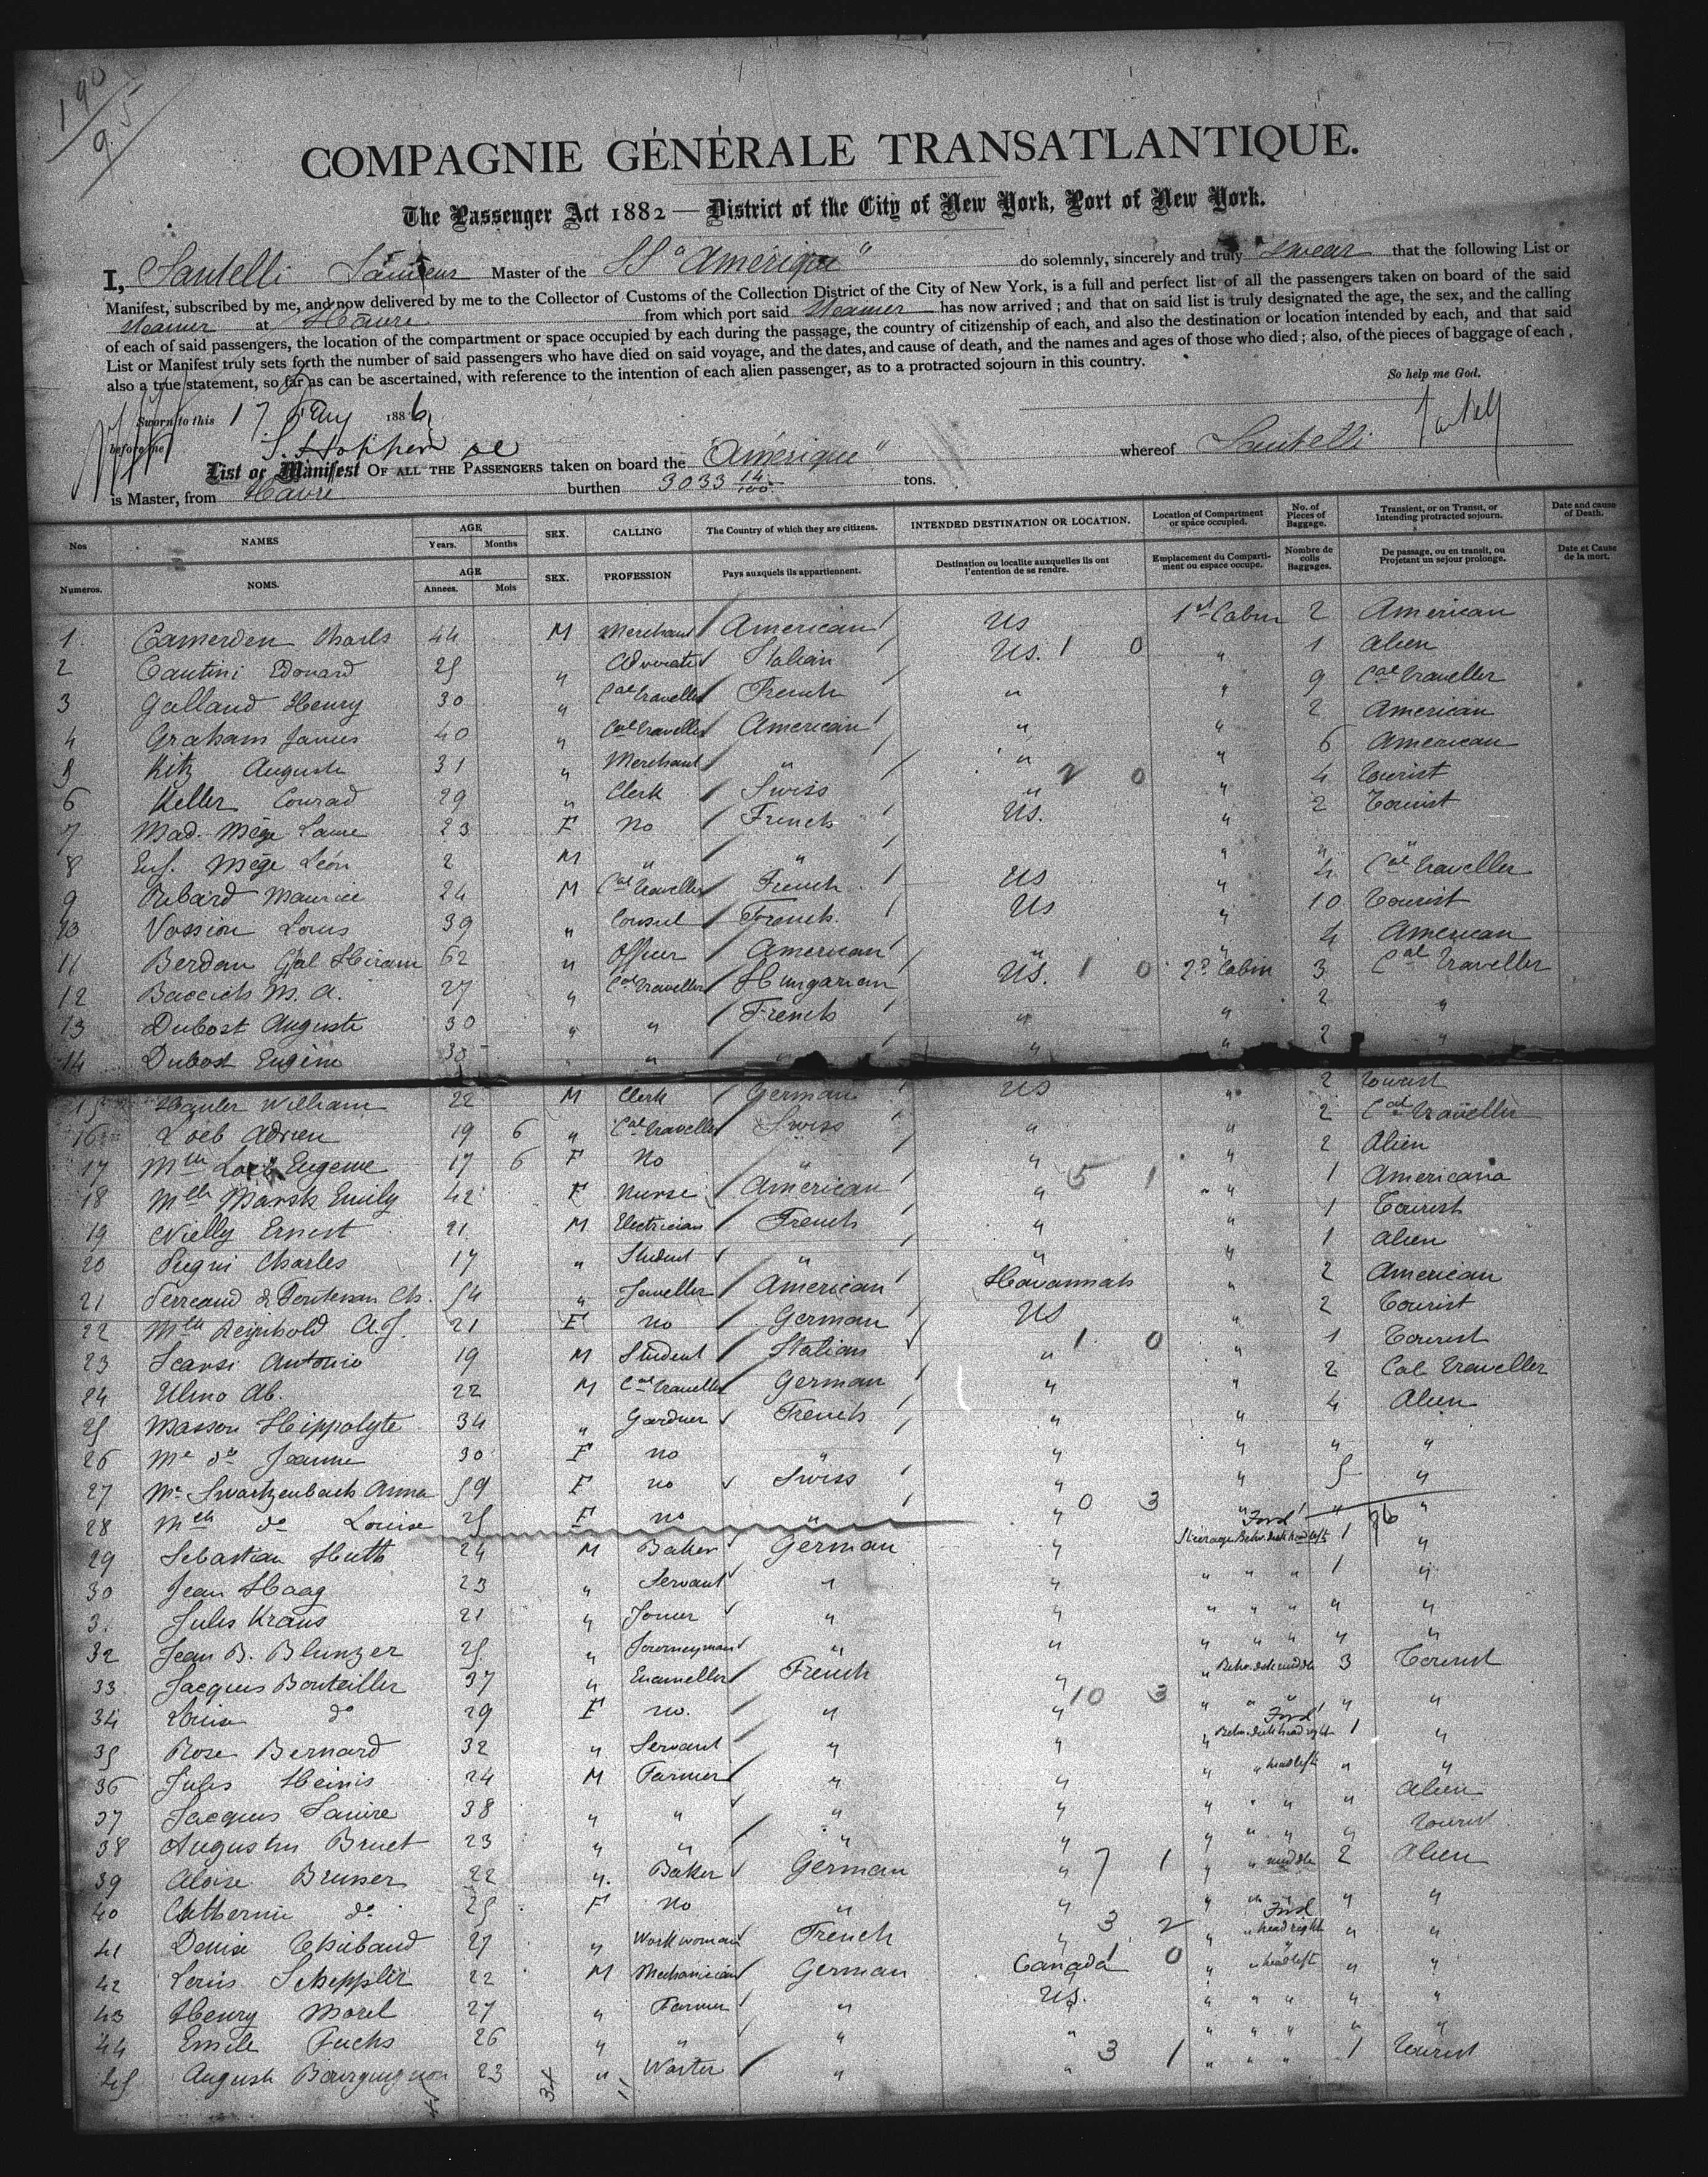 190/95
COMPAGNIE GÉNÉRALE TRANSATLANTIQUE.
The Passenger Act 1882 — District of the City of New York, Port of New York.
I, Santelli Master of the SS "Amérique" do solemnly, sincerely and truly swear that the following List or
Manifest, subscribed by me, and now delivered by me to the Collector of Customs of the Collection District of the City of New York, is a full and perfect list of all the passengers taken on board of the said
steamer at Havre from which port said Steamer has now arrived ; and that on said list is truly designated the age, the sex, and the calling
of each of said passengers, the location of the compartment or space occupied by each during the passage, the country of citizenship of each, and also the destination or location intended by each, and that said
List or Manifest truly sets forth the number of said passengers who have died on said voyage, and the dates, and cause of death, and the names and ages of those who died ; also, of the pieces of baggage of each ,
also a true statement, so far as can be ascertained, with reference to the intention of each alien passenger, as to a protracted sojourn in this country.
So help me God.
Sworn to this 17 1886
before me
List or Manifest OF ALL THE PASSENGERS taken on board the "Amérique" whereof Santelli
is Master, from Havre burthen 3033 14/100 tons.
Nos NAMES AGE Years. Months SEX. CALLING The Country of which they are citizens. INTENDED DESTINATION OR LOCATION. Location of Compartment or space occupied. No. of Pieces of Baggage. Transient, or on Transit, or Intending protracted sojourn. Date and cause of Death.
Numeros. NOMS. AGE Annees. Mois SEX. PROFESSION Pays auxquels ils appartiennent. Destination ou localite auxquelles ils ont l'entention de se rendre. Emplacement du Comparti-ment ou espace occupe. Nombre de colis Baggages. De passage, ou en transit, ou Projetant un sejour prolonge. Date et Cause de la mort.
1 Camerden Charls 44 M Merchant American US 1st Cabin 2 American
2 Cantini Edouard 25 " Advocate Italian US. 1 0 " 1 Alien
3 Galland Henry 30 " Cal traveller French " " 9 Cal traveller
4 Graham James 40 " Cal traveller American " " 2 American
5 Kitz Auguste 31 " Merchant " " " 6 American
6 Keller Conrad 29 " Clerk Swiss " 2 0 " 4 Tourist
7 Mad. Mège Laure 23 F no French US. " 2 Tourist
8 Enf. Mège Léon 2 M " " " " "
9 Ribard Maurice 24 M Cal traveller French US " 4 Cal traveller
10 Vossion Louis 39 " Consul French US " 10 Tourist
11 Berdan Gal Hiram 62 " Officer American " " 4 American
12 Baccich M. A. 27 " Cal traveller Hungarian US. 1 0 2d Cabin 3 Cal traveller
13 Dubost Auguste 30 " " French " " 2 "
14 Dubost Eugène 35 " " " " " 2 "
15 William 22 M Clerk German US " 2 Tourist
16 Loeb Adrien 19 6 " Cal traveller Swiss " " 2 Cal traveller
17 Mlle Loeb Eugenie 17 6 F No " " " 2 Alien
18 Melle Marsh Emily 42 F Nurse American " 5 1 " 1 Americana
19 Nielly Ernest 21 M Electrician French " " 1 Tourist
20 Pugni Charles 17 " Student " " " 1 Alien
21 Perreaud & Fontenan Ch. 54 " Jeweller American Havannah " 2 American
22 Mlle Reinbold A.J. 21 F no German US " 2 Tourist
23 Scansi Antonio 19 M Student Italian " 1 0 " 1 Tourist
24 Ulmo Ab. 22 M Cal traveller German " " 2 Cal traveller
25 Masson Hippolyte 34 " Gardner French " " 4 Alien
26 Me do Jeanne 30 F no " " " " "
27 Me Swartzenbach Anna 59 F no Swiss " " 5 "
28 Melle do Louise 25 F no " " 0 3 " " "
29 Sebastian Huth 24 M Baker German " Steerage Betw. deck head left 1 96 "
30 Jean Haag 23 " Servant " " " " " 1 "
31 Jules Kraus 21 " Joiner " " " " " " "
32 Jean B. Blunzer 25 " Journeyman " " " " " " "
33 Jacques Bouteiller 37 " Enameller French " " Betw. deck middle 3 Tourist
34 Louise do 29 F no. " " 10 3 " " " " "
35 Rose Bernard 32 " Servant " " Ford " Betw. deck head right 1 "
36 Jules Heinis 24 M Farmer " " " " head left " "
37 Jacques 38 " " " " " " " " Alien
38 Augustin Bruet 23 " " " " " " " " Tourist
39 Aloise Brunner 22 ". Baker German " 7 1 " " middle 2 Alien
40 Catherine do 25 F No " " " " " " "
41 Denise Thiebaud 27 " Workwoman French " 3 2 Ford " " head right " "
42 Louis Scheppler 22 M Mechanician German Canada 1 0 " " head left " "
43 Henry Morel 27 " Farmer " US. " " " " "
44 Emile Fuchs 26 " " " " " " " " "
45 August Bourguignon 23 " Waiter " " 3 1 " " " 1 Tourist
34 11